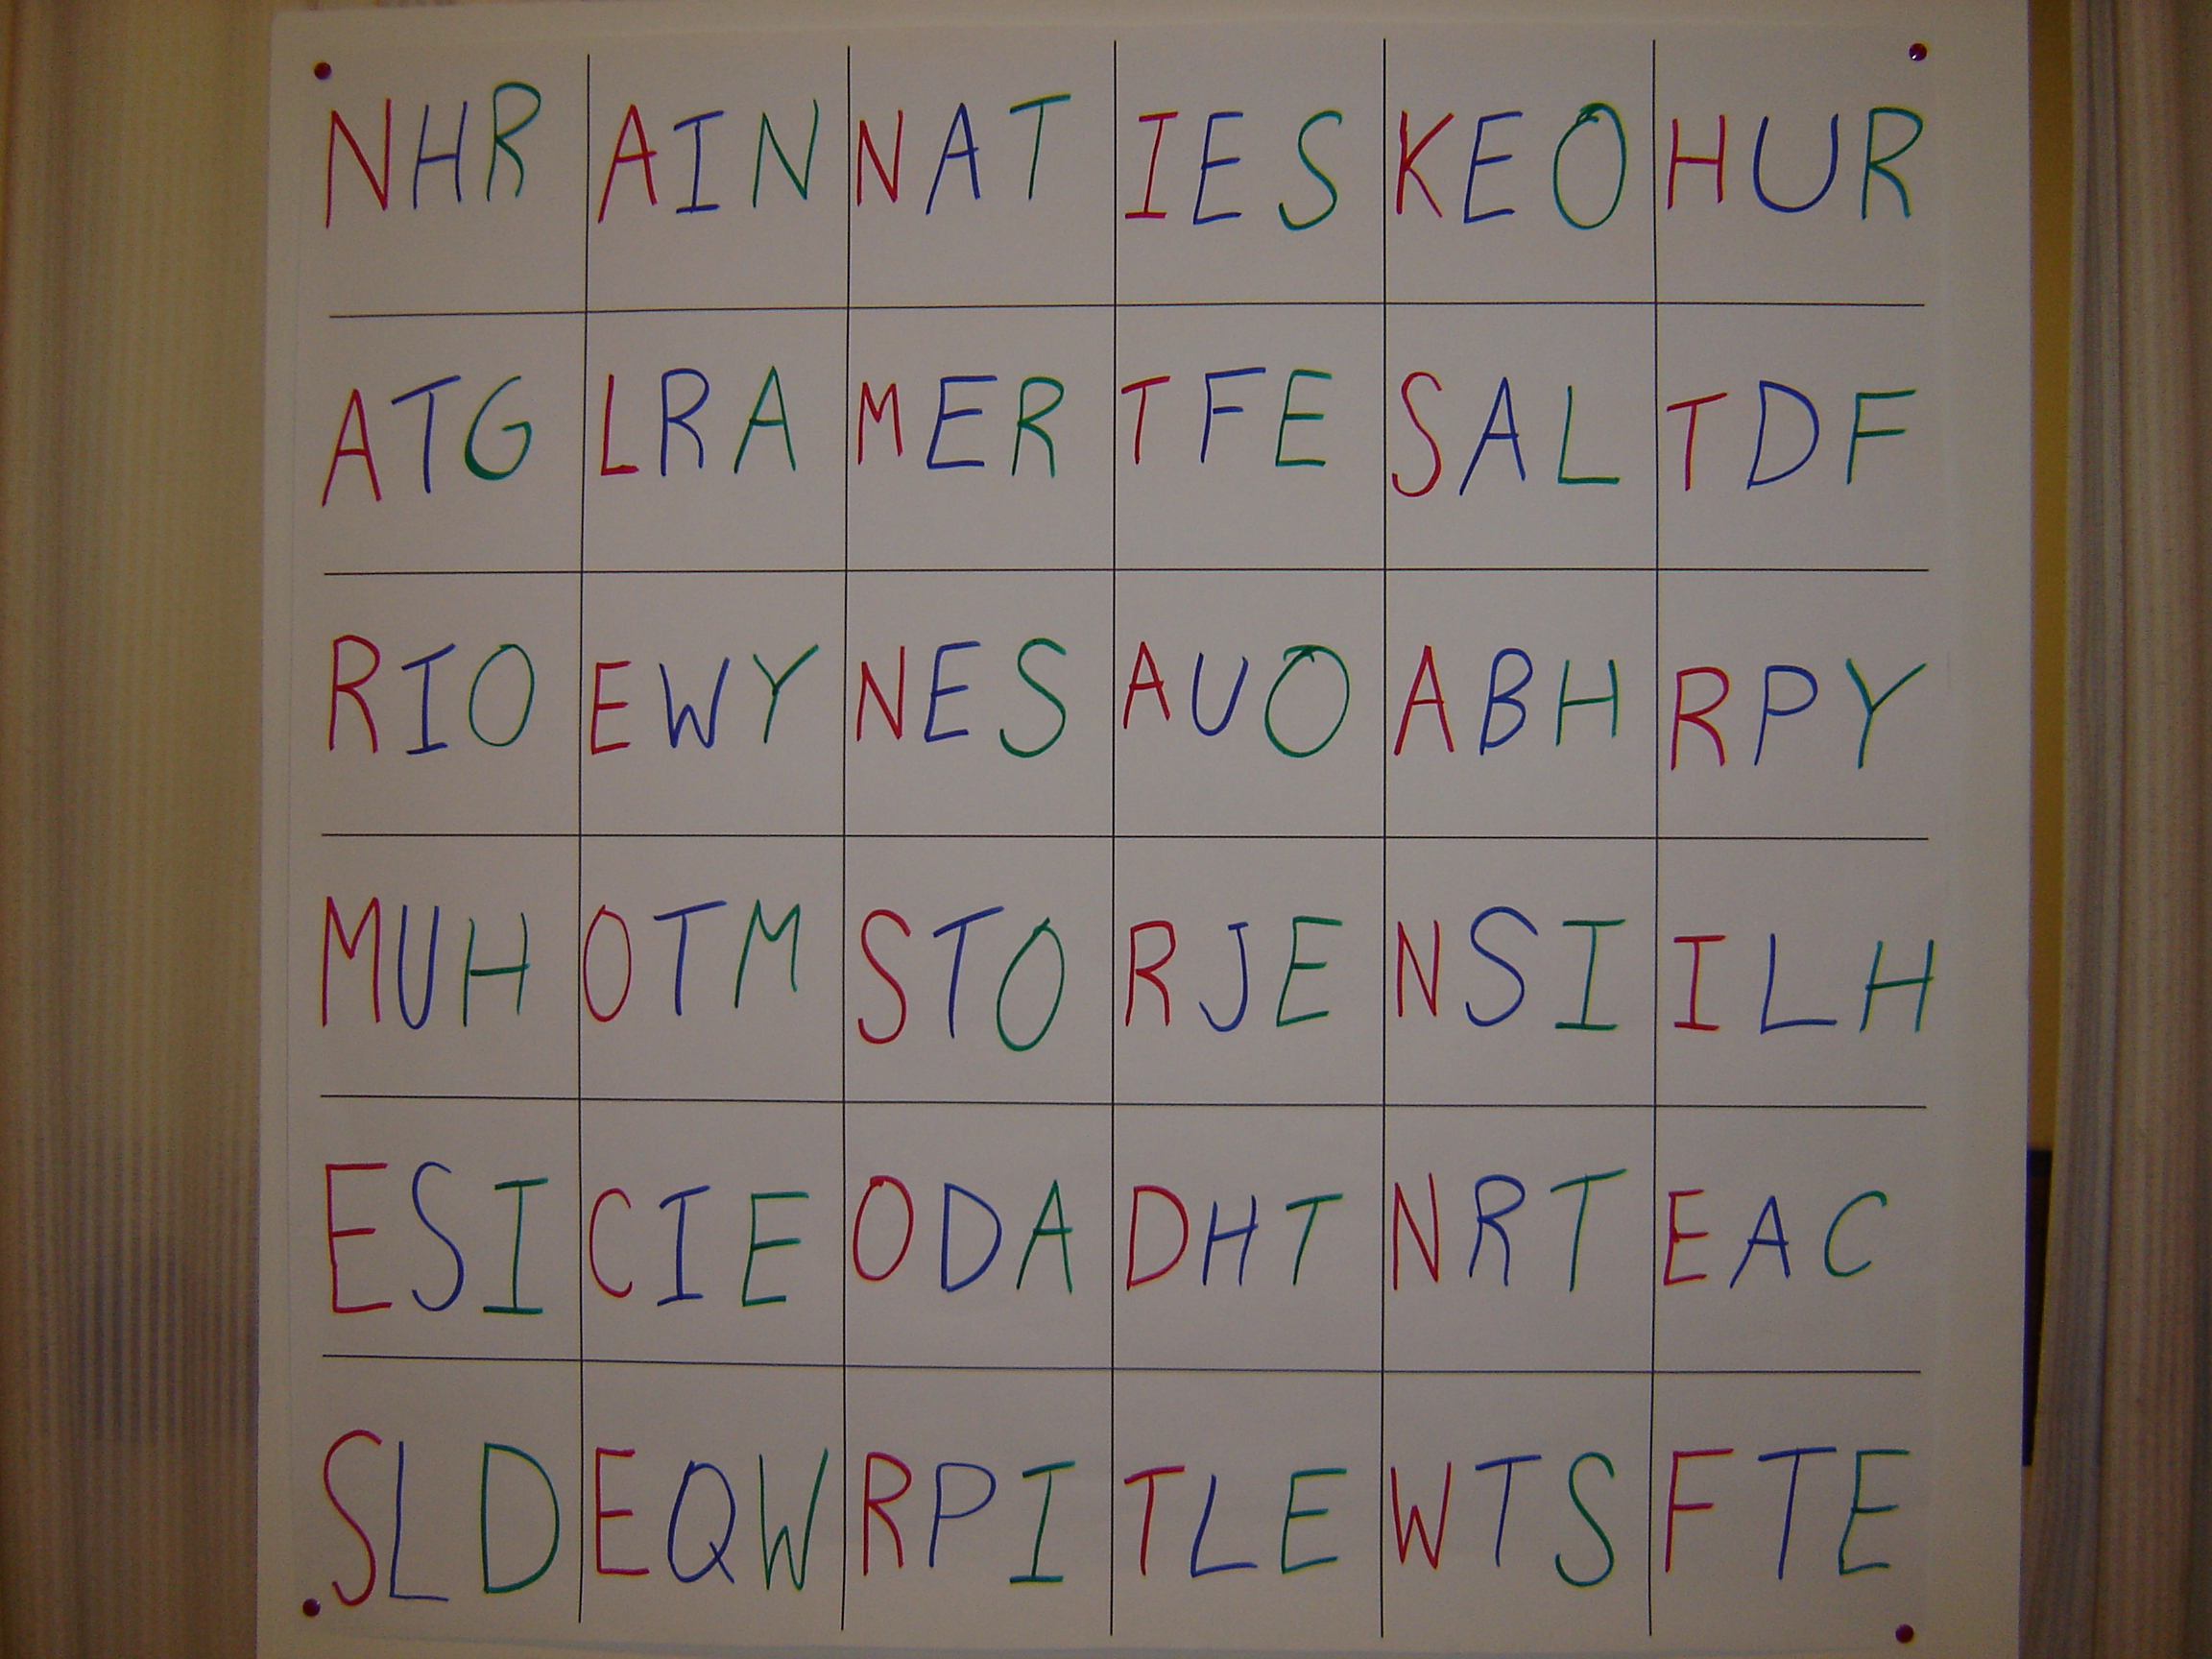 NHR AIN NAT IES KEO HUR
ATG LRA MER TFE SAL TDF
RIO EWY NES AUO ABH RPY
MUH OTM STO RJE NSI ILH
ESI CIE ODA DHT NRT EAC
SLD EQW RPI TLE WTS FTE